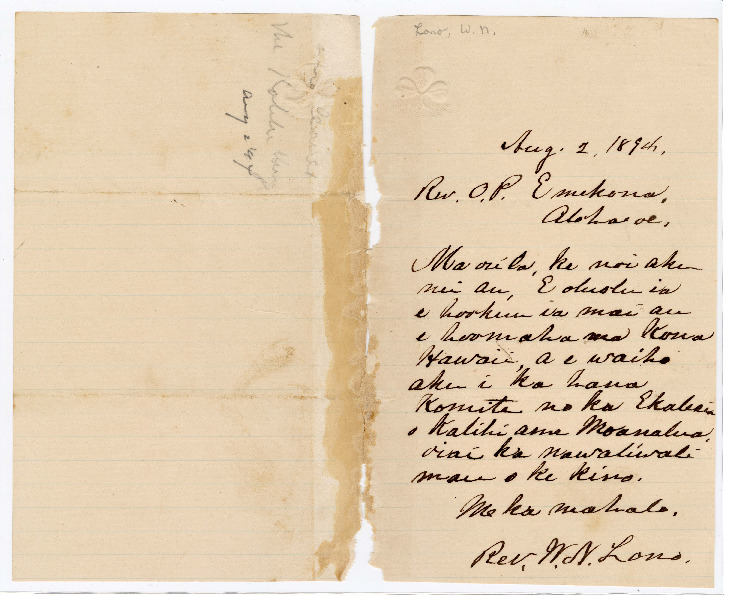 Lono, W. N.
Aug. 2, 1894.
Rev. O. P. Emekona,
Aloha oe,
Ma oi la, ke noi aku
nei au, E oluolu ia
e hookuu ia mai au
e hoomaha ma Kona
Hawaii, a e waiho
aku i ka hana
Komite no ka Ekalesia
o Kalihi ame Moanalua,
oiai ka nawaliwali
mau o ke kino.
Me ka mahalo.
Rev. W. N. Lono.
The Kalihi
Aug 2 94